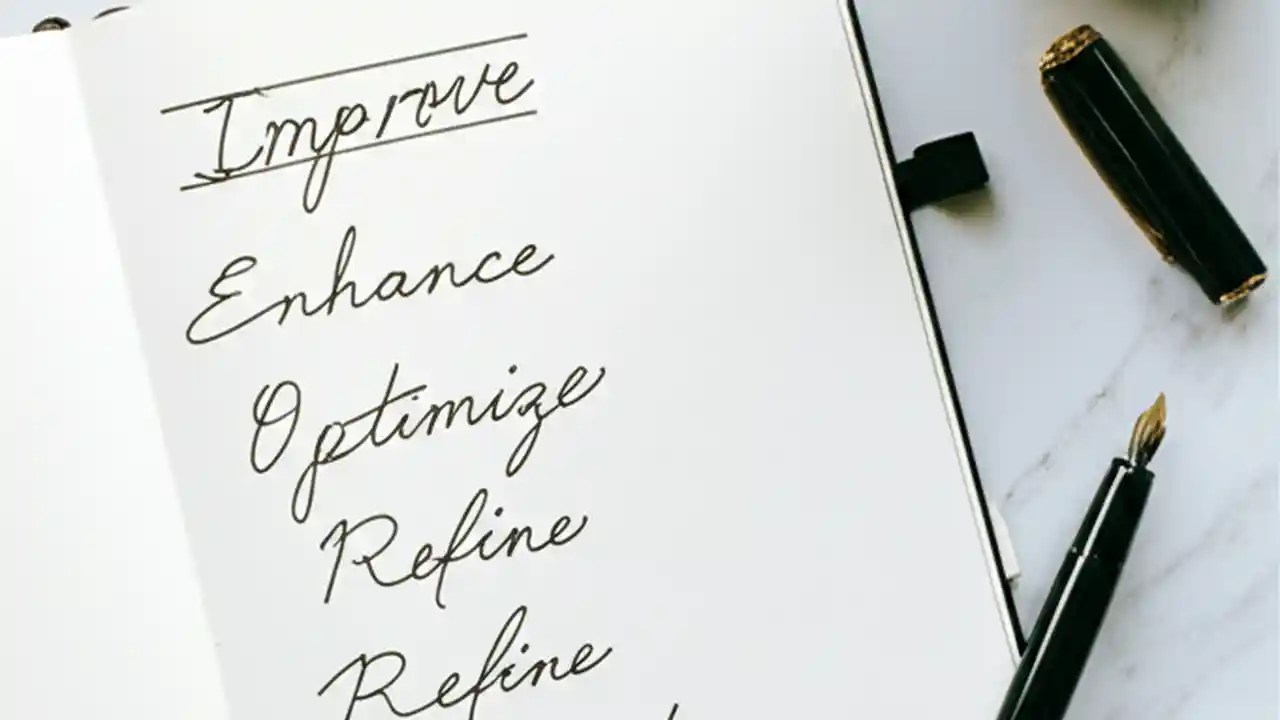 Improve
Enhance
Optimize
Refine
Refine